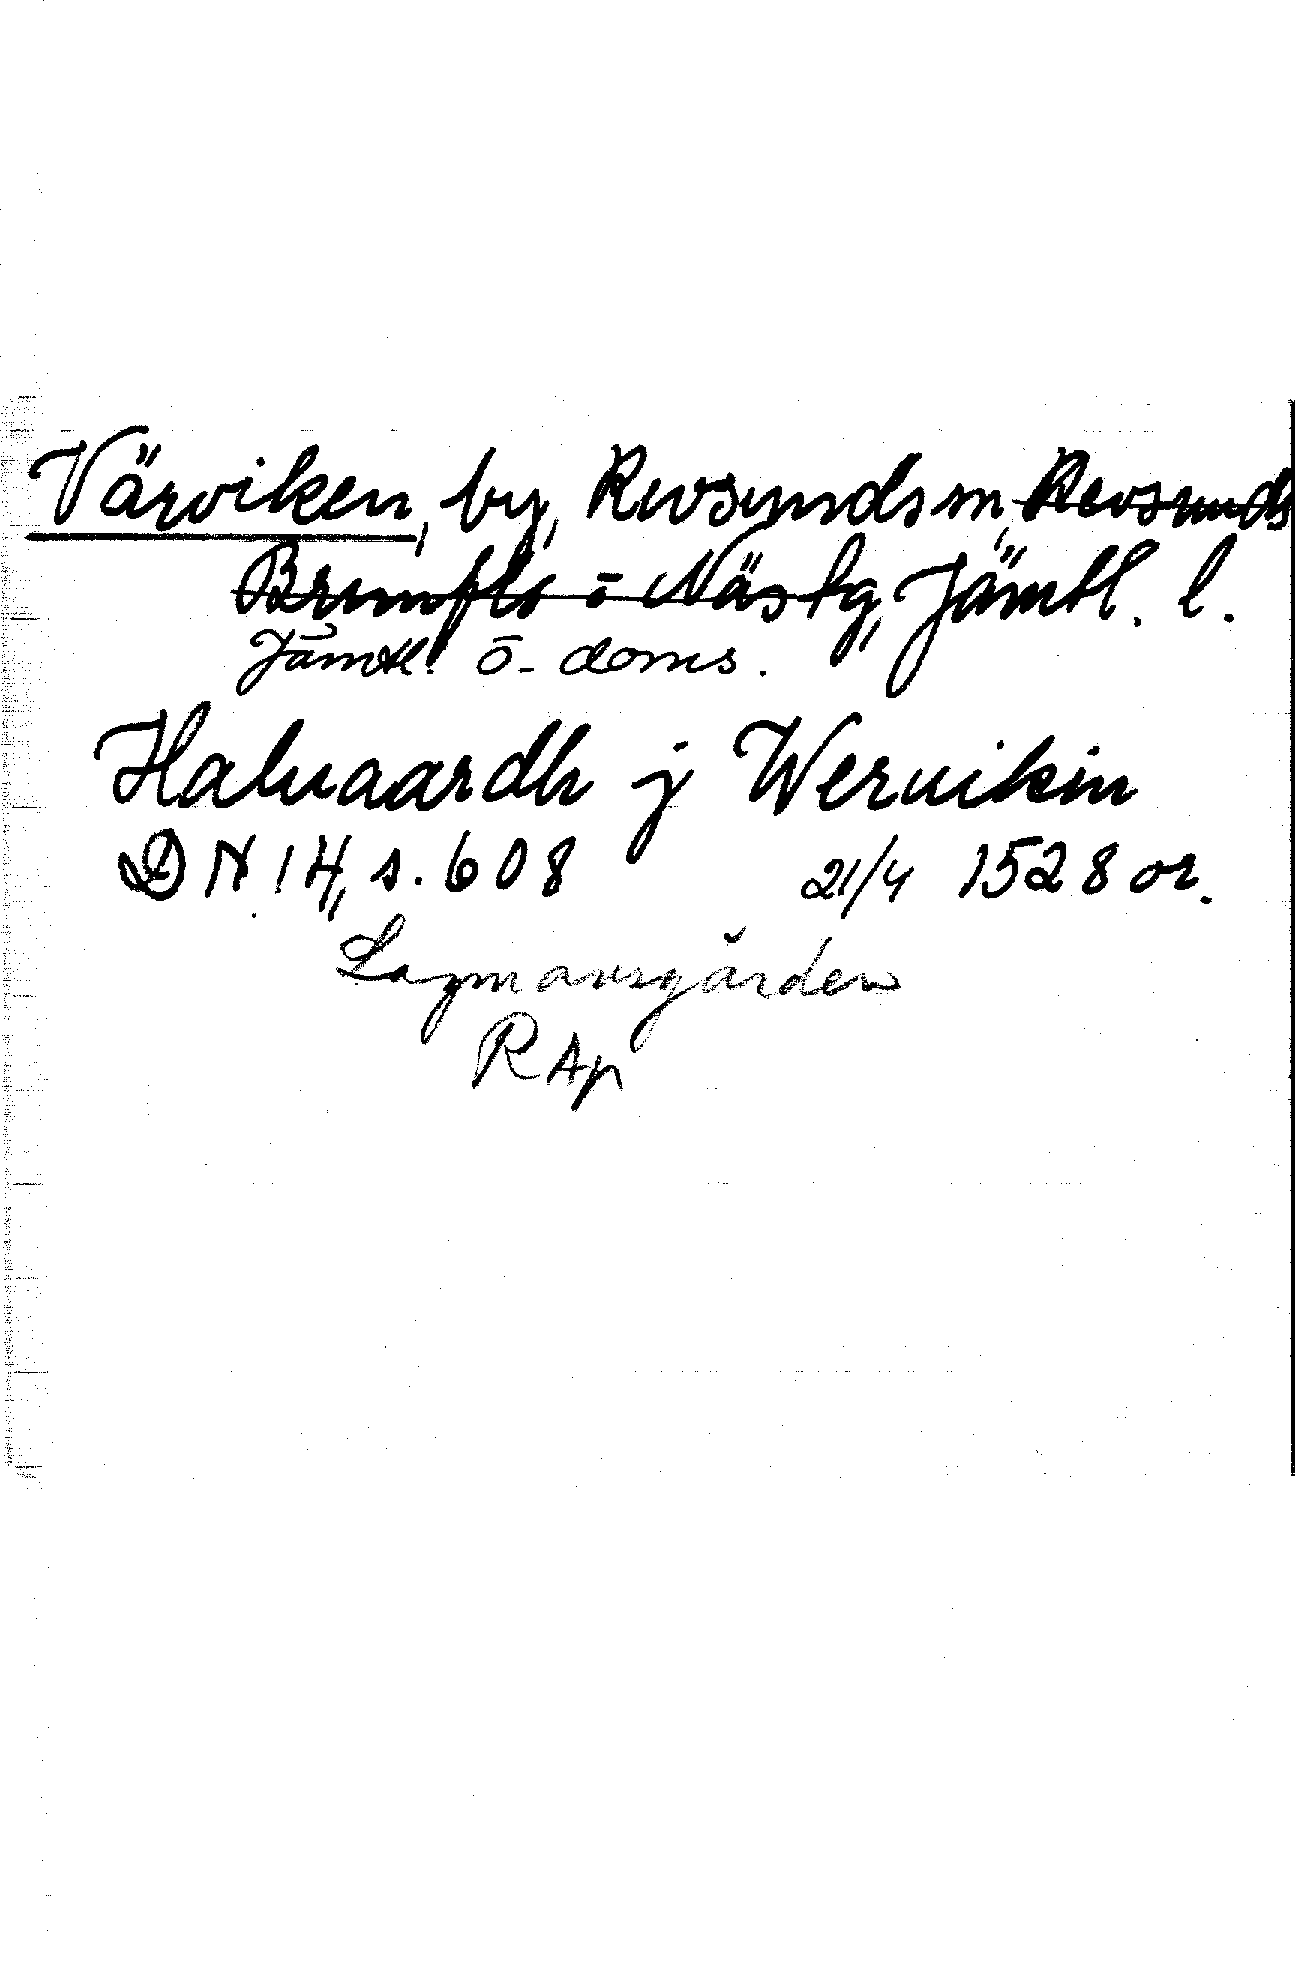 Värviken, by, Revsunds sn, Revsunds
Brunflo o Näs tg, Jämtl. l.
Jämtl. ö. doms.
Haluaardh j Weruikin
DN 14, s. 608 21/4 1528 or.
Lagmansgården
RAp